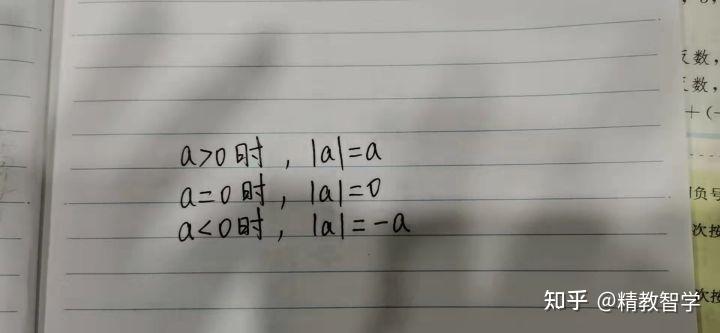 a>0时，|a|=a
a=0时，|a|=0
a<0时，|a|=-a
反数，
数，
+(-
负号
次按
次按
知乎 @精教智学